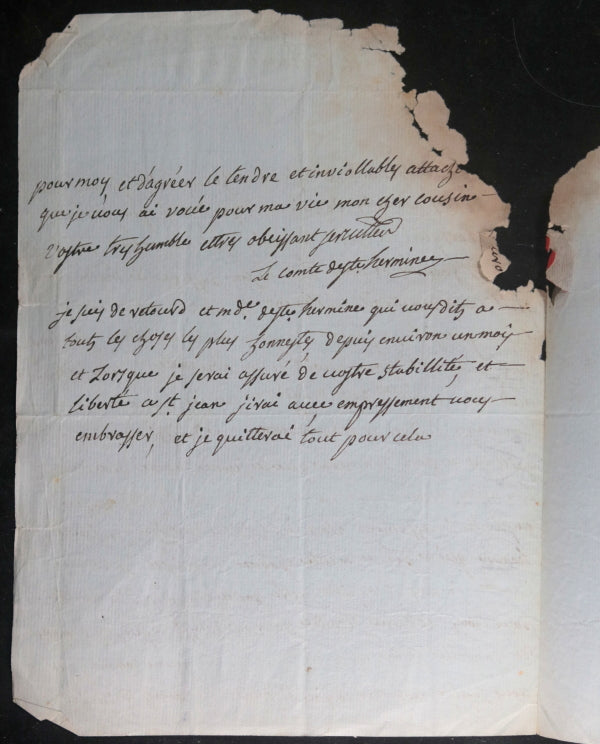 pour moy et dagréer le tendre et inviollables attache
que je vous ai voüée pour ma vie mon cher cousin
vostre tres humble ettres obeissant serviteur
Le comte deste hermine
je suis de retourd et mde. deste. hermine qui vous dits a
touts les choses les plus honnestes depuis environ un moy
et Lorsque je serai assuré de vostre stabillité, et
liberté a st. jean jirai avec empressement vous
embrasser, et je quitterai tout pour cela